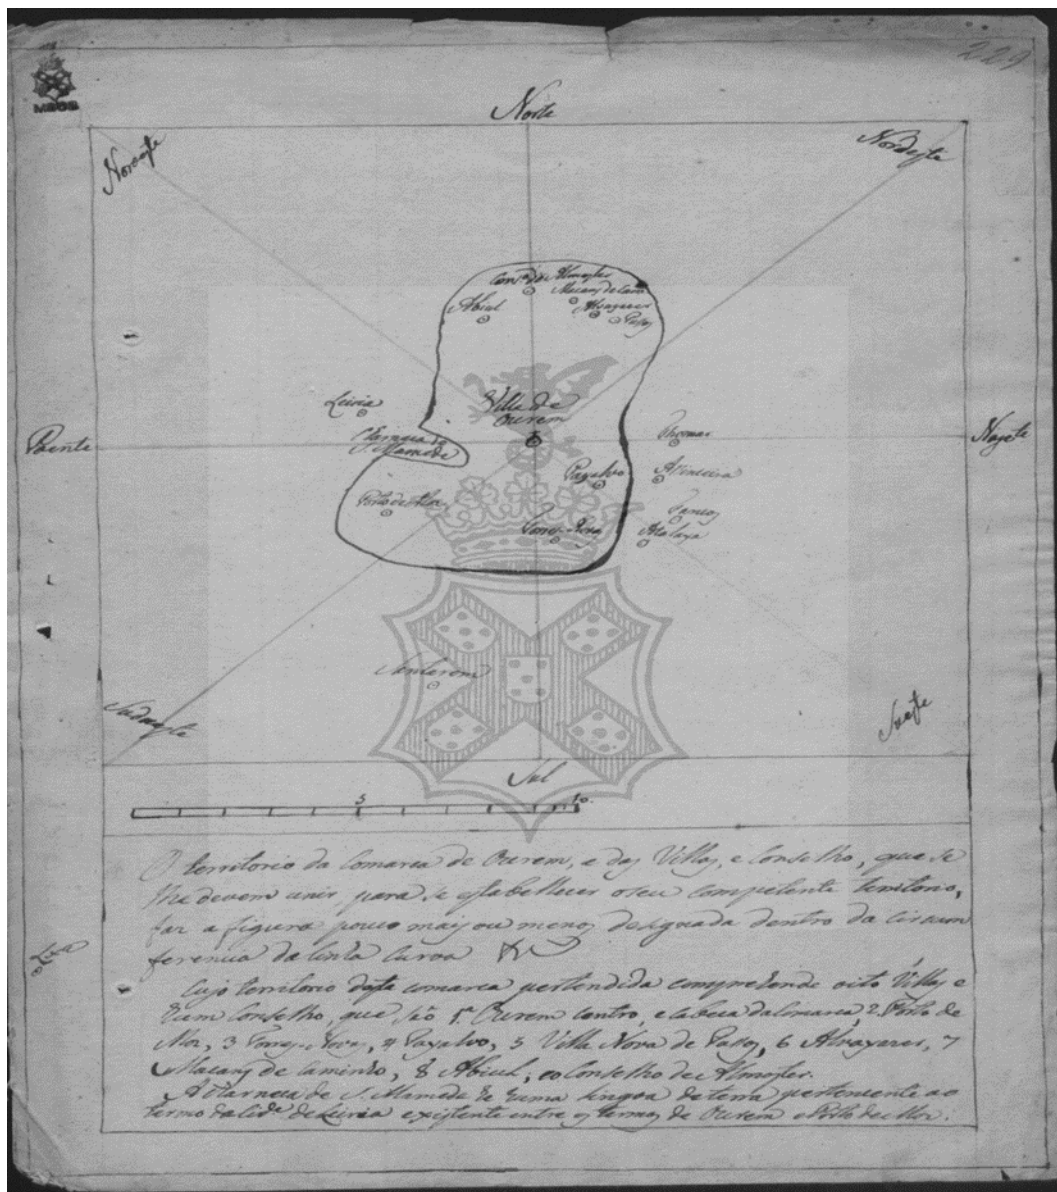 229
MSCS
Norte
Noroeste
Nordeste
Cons.º de Almoster
Macans de Cam.
Abiul
Alvayazer
Passos
Leiria
Villa de
Ourem
Charneca de
S. Mamede
Poente
Thomar
Naçente
Payalvo
Asinceira
Porto de Mos
Tancos
Torres-Novas
Atalaya
Santarem
Suduéste
Suéste
Sul
5 10.
O territorio da Comarca de Ourem, e das Villas, e Conselho, que se
lhe devem unir para se estabellecer o seu competente territorio,
faz a figura pouco mais ou menos designada dentro da circum
ferencia da linha curva
Lixa
Cujo territorio desta comarca pertendida comprehende oito Villas e
hum Conselho, que são 1.ª Ourem centro, e cabeca da Comarca, 2 Porto de
Mos, 3 Torres-Novas, 4 Payalvo, 5 Villa Nova de Passos, 6 Alvayazer, 7
Macans de Caminho, 8 Abiul; e o Conselho de Almoster.
A Charneca de S. Mamede he huma lingoa de terra pertencente ao
termo da Cid.e de Leiria existente entre os termos de Ourem e Porto de Mos.